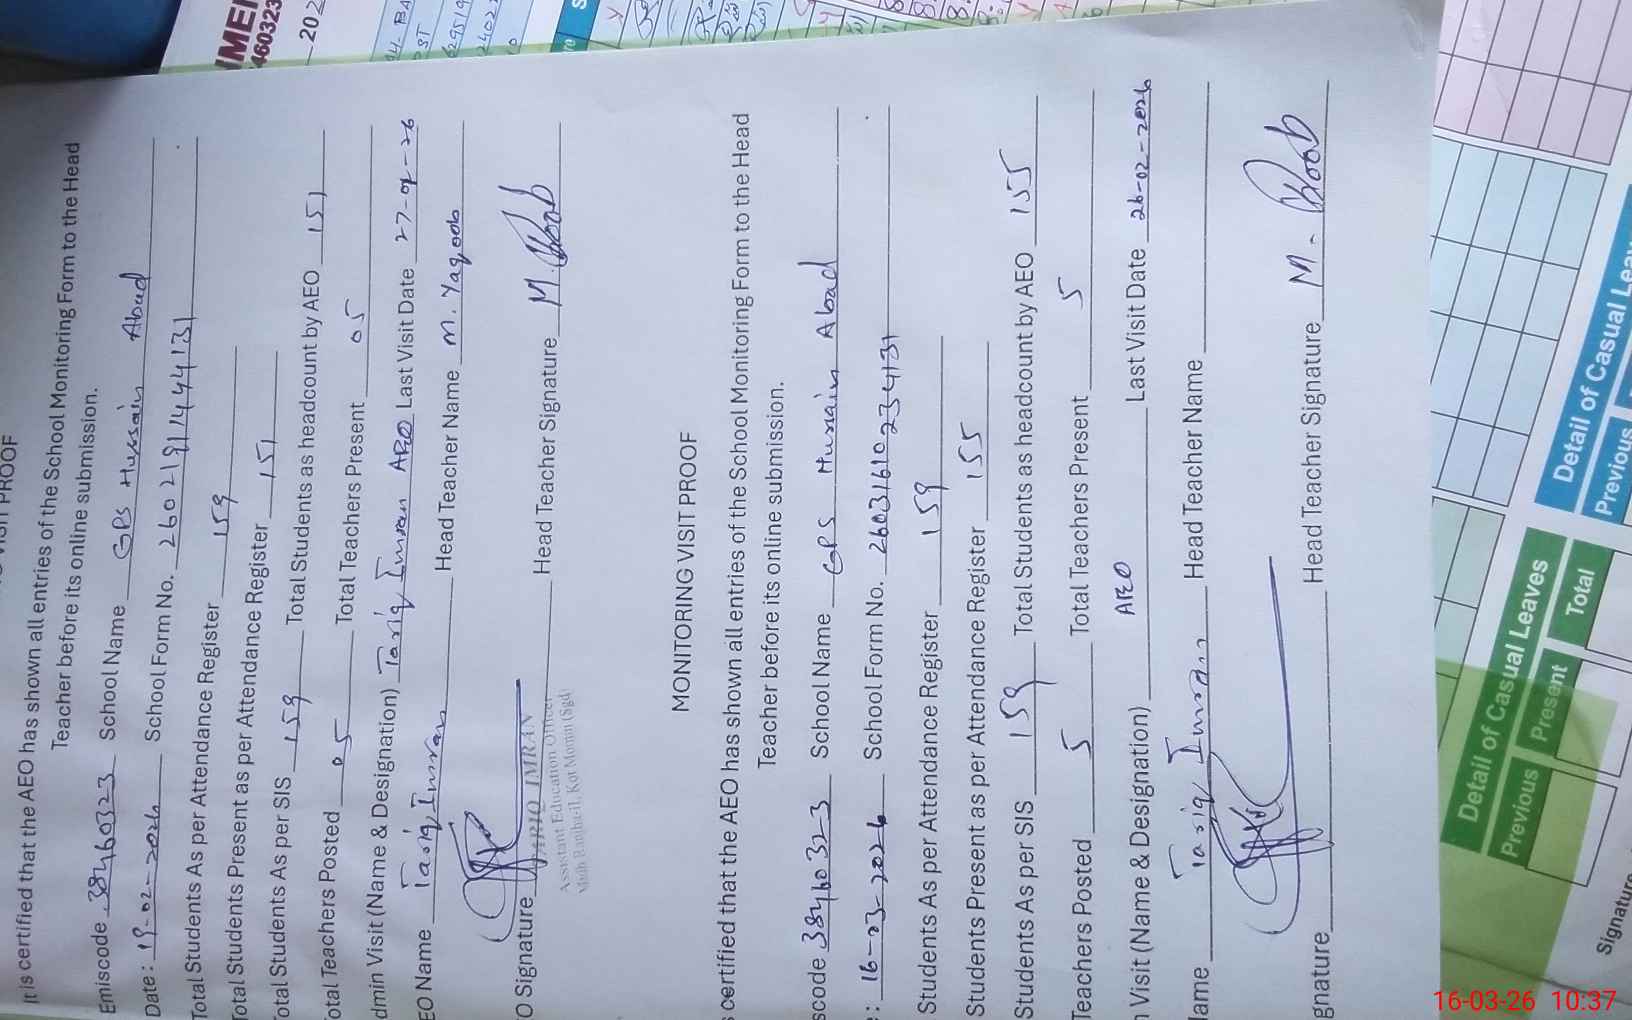 MONITORING VISIT PROOF
It is certified that the AEO has shown all entries of the School Monitoring Form to the Head
Teacher before its online submission.
Emiscode 38460323 School Name GPS Hussain Abad
Date: 19-02-2026 School Form No. 260219144131
Total Students As per Attendance Register 159
Total Students Present as per Attendance Register 151
Total Students As per SIS 159 Total Students as headcount by AEO 151
Total Teachers Posted 05 Total Teachers Present 05
Admin Visit (Name & Designation) Tariq Imran AEO Last Visit Date 27-01-26
AEO Name Tariq Imran Head Teacher Name M. Yaqoob
AEO Signature Head Teacher Signature M. Yaqoob
TARIQ IMRAN
Assistant Education Officer
Kot Momin (Sgd)
MONITORING VISIT PROOF
certified that the AEO has shown all entries of the School Monitoring Form to the Head
Teacher before its online submission.
scode 38460323 School Name GPS Hussain Abad
: 16-03-2026 School Form No. 260316102334131
Students As per Attendance Register 159
Students Present as per Attendance Register 155
Students As per SIS 159 Total Students as headcount by AEO 155
Teachers Posted 5 Total Teachers Present 5
n Visit (Name & Designation) AEO Last Visit Date 26-02-2026
Name Tariq Imran Head Teacher Name
gnature Head Teacher Signature M. Yaqoob
Detail of Casual Leaves
Previous Present Total
Detail of Casual Leav
Previous
Signature
16-03-26 10:37